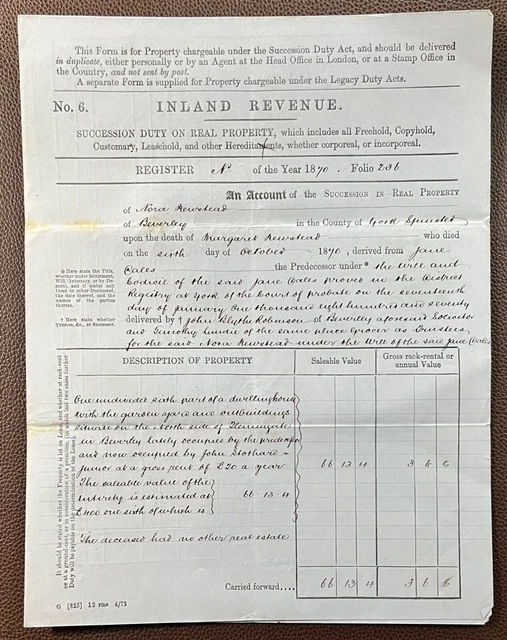 This Form is for Property chargeable under the Succession Duty Act, and should be delivered
in duplicate, either personally or by an Agent at the Head Office in London, or at a Stamp Office in
the Country, and not sent by post.
A separate Form is supplied for Property chargeable under the Legacy Duty Acts.
No. 6. INLAND REVENUE.
SUCCESSION DUTY ON REAL PROPERTY, which includes all Freehold, Copyhold,
Customary, Leasehold, and other Hereditaments, whether corporeal, or incorporeal.
REGISTER No of the Year 1870. Folio 236
An Account of the SUCCESSION IN REAL PROPERTY
of Nora Newstead
of Beverley in the County of York Spinster
upon the death of Margaret Newstead who died
on the sixth day of October 1870, derived from Jane
Cales the Predecessor under * the Will and
Codicil of the said Jane Cales proved in the District
Registry at York of the Court of probate on the seventeenth
day of January One thousand eight hundred and seventy
delivered by † John Blyth Robinson of Beverley aforesaid Solicitor
and Timothy of the same place Grocer as Trustees
for the said Nora Newstead under the Will of the said Jane Cales
Here state the Title,
whether under Settlement,
Will, Intestacy, or by De-
scent, and if under any
Deed or other Document,
the date thereof, and the
names of the parties
thereto.
† Here state whether
Trustee, &c., or Successor.
It should be stated whether the Property is let on Lease, and whether at rack-rent
or at a ground-rent, or in consideration of a premium, (in which last two cases further
Duty will be payable on the determination of the Lease).
DESCRIPTION OF PROPERTY Saleable Value Gross rack-rental or
annual Value
One undivided sixth part of a dwellinghouse
with the garden yard and outbuildings
situate on the North side of Flemingate
in Beverley lately occupied by the predecessor
and now occupied by John Stothard
junior at a gross rent of £20 a year 66 13 4 3 6
The saleable value of the
entirety is estimated at 66-13-4
£400 one sixth of which is
The deceased had no other real estate
Carried forward.... 66 13 4 3 6
G [825] 12 rms 4/72